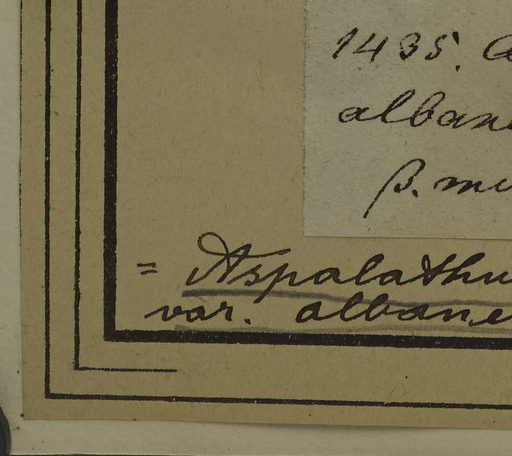 1435. a
albane
β. mu
= Aspalathu
var. albane